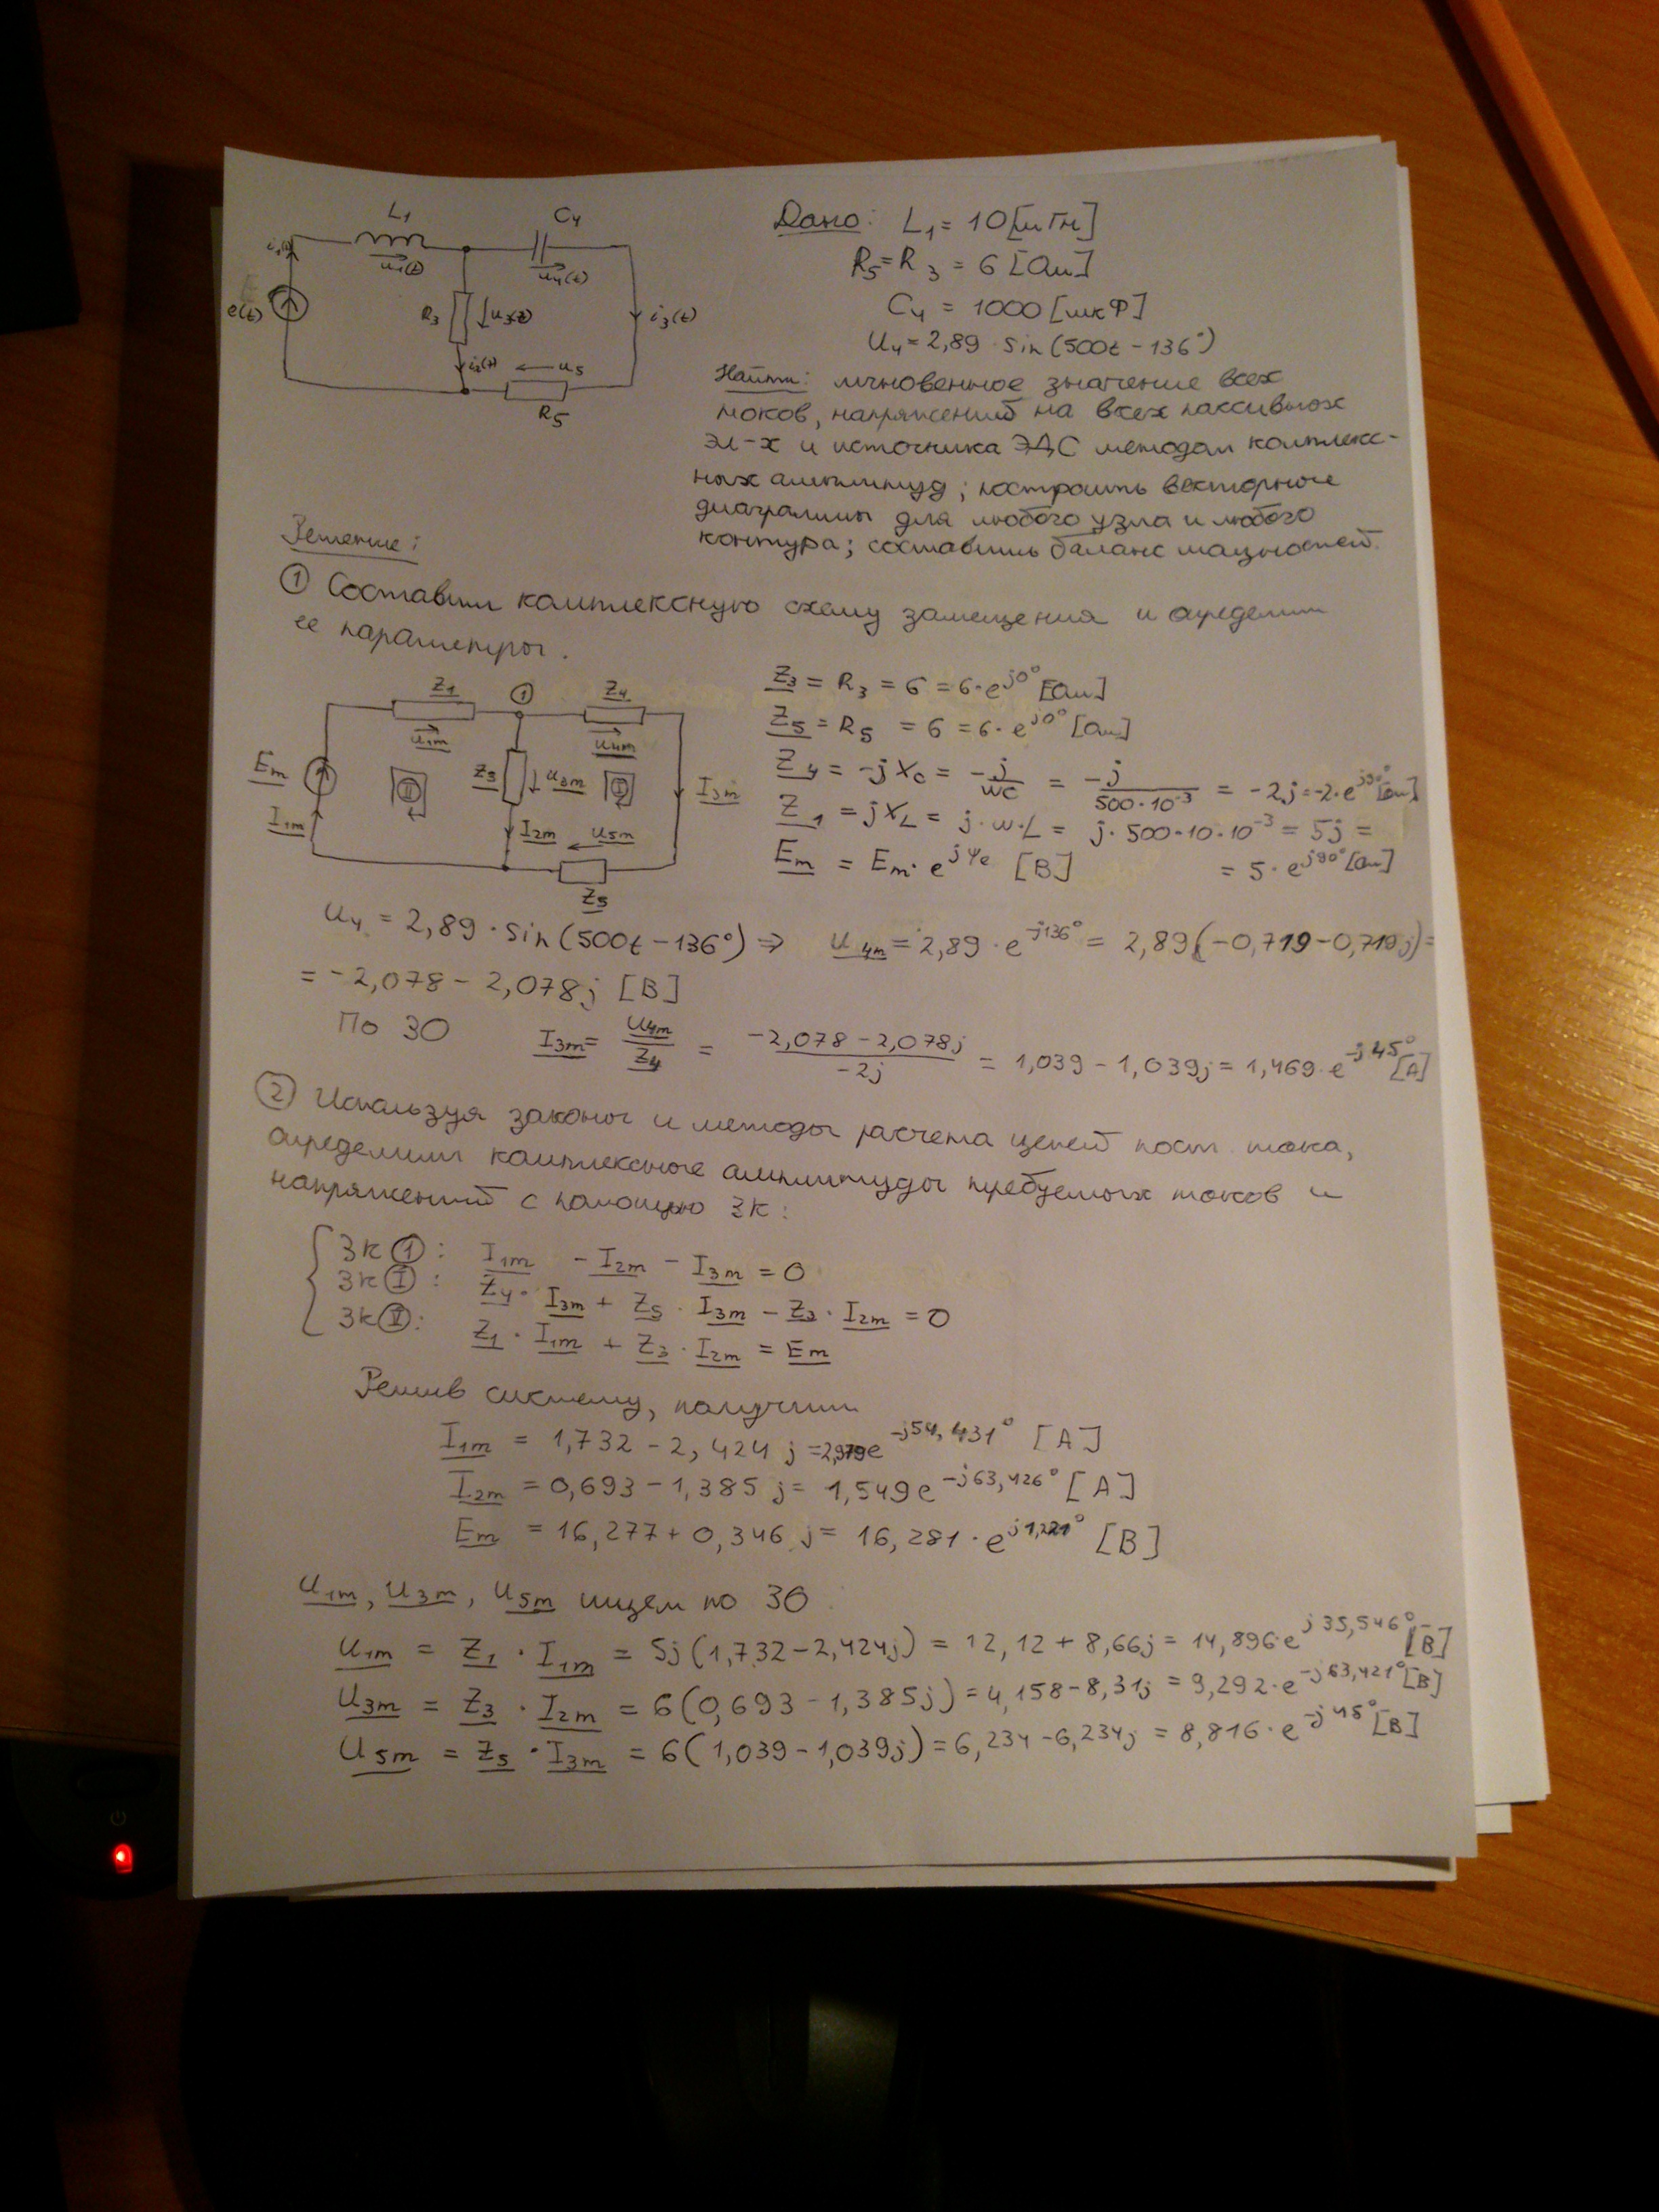 L₁
C₄
i₁(t)
u₁(t)
u₄(t)
e(t)
R₃
u₃(t)
i₃(t)
i₂(t)
u₅
R₅
Дано: L₁ = 10 [мГн]
R₅ = R₃ = 6 [Ом]
C₄ = 1000 [мкФ]
U₄ = 2,89 · sin(500t − 136°)
Найти: мгновенное значение всех
токов, напряжений на всех пассивных
эл-х и источника ЭДС методом комплекс-
ных амплитуд; построить векторные
диаграммы для любого узла и любого
контура; составить баланс мощностей.
Решение:
① Составим комплексную схему замещения и определим
ее параметры.
Z₁
①
Z₄
U₁m
U₄m
Em
Z₃
U₃m
II
I
I₃m
I₁m
I₂m
U₅m
Z₅
Z₃ = R₃ = 6 = 6·e^j0° [Ом]
Z₅ = R₅ = 6 = 6·e^j0° [Ом]
Z₄ = −jXc = −j/wc = −j/500·10⁻³ = −2j = −2·e^j90° [Ом]
Z₁ = jX_L = j·w·L = j·500·10·10⁻³ = 5j =
= 5·e^j90° [Ом]
Em = Em·e^jψe [В]
U₄ = 2,89 · sin(500t − 136°) ⇒ U₄m = 2,89 · e^−j136° = 2,89(−0,719 − 0,719j) =
= −2,078 − 2,078j [В]
По ЗО I₃m = U₄m/Z₄ = −2,078 − 2,078j/−2j = 1,039 − 1,039j = 1,469·e^−j45° [А]
② Используя законы и методы расчета цепей пост. тока,
определим комплексные амплитуды требуемых токов и
напряжений с помощью ЗК:
ЗК①: I₁m − I₂m − I₃m = 0
ЗКⒾ: Z₄·I₃m + Z₅·I₃m − Z₃·I₂m = 0
ЗК(II): Z₁·I₁m + Z₃·I₂m = Em
Решив систему, получим
I₁m = 1,732 − 2,424j = 2,979e^−j54,431° [А]
I₂m = 0,693 − 1,385j = 1,549e^−j63,426° [А]
Em = 16,277 + 0,346j = 16,281·e^j1,221° [В]
U₁m, U₃m, U₅m ищем по ЗО
U₁m = Z₁·I₁m = 5j(1,732 − 2,424j) = 12,12 + 8,66j = 14,896·e^j35,546° [В]
U₃m = Z₃·I₂m = 6(0,693 − 1,385j) = 4,158 − 8,31j = 9,292·e^−j63,421° [В]
U₅m = Z₅·I₃m = 6(1,039 − 1,039j) = 6,234 − 6,234j = 8,816·e^−j45° [В]